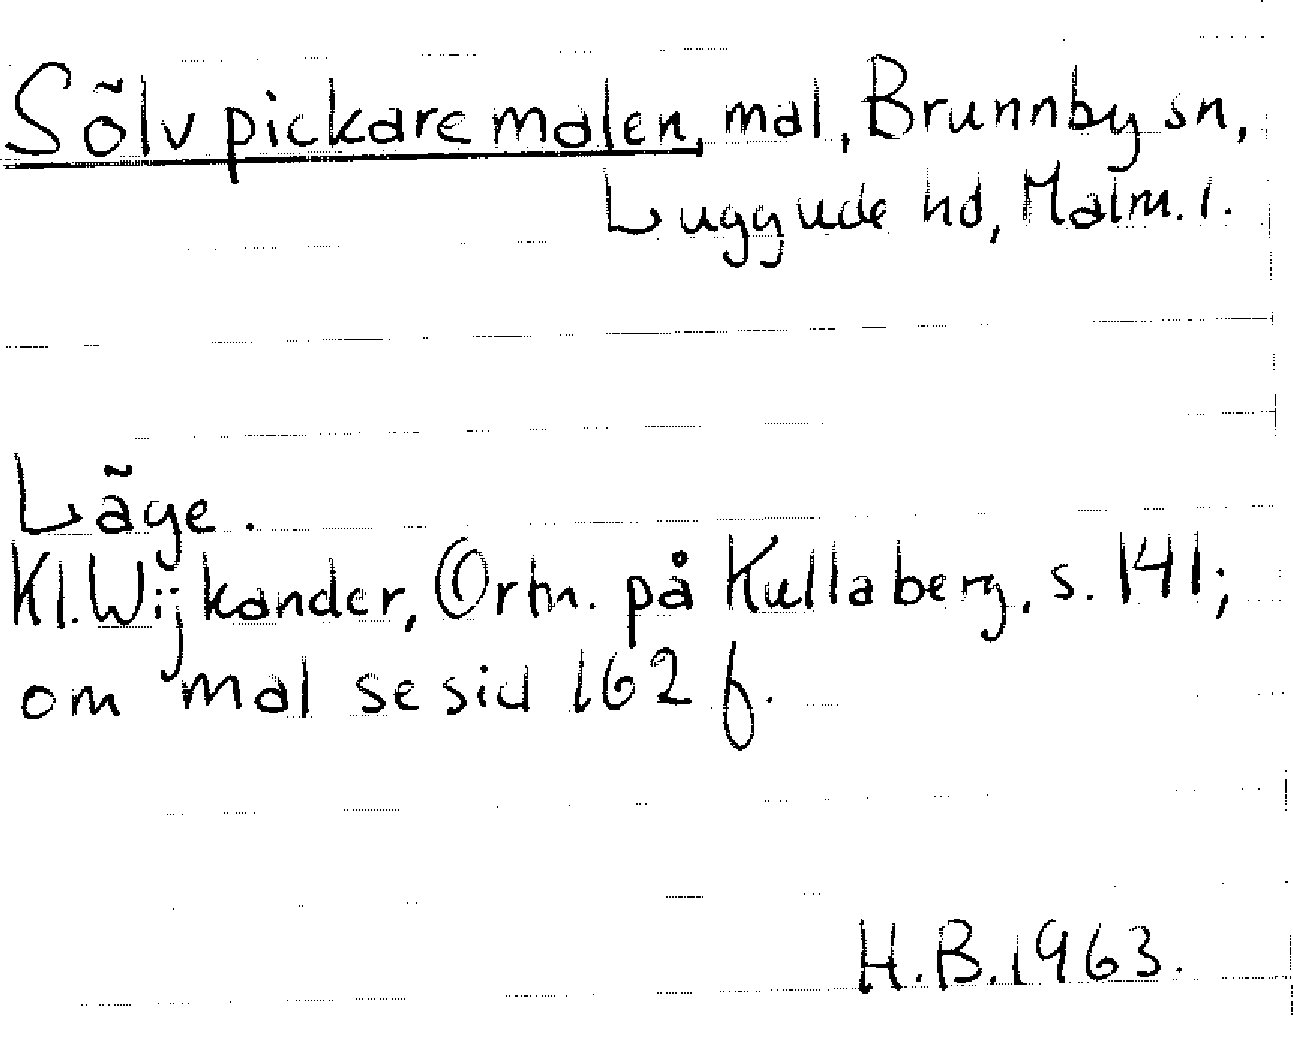 Sölvpickaremalen, mal, Brunnby sn,
Luggude hd, Malm. l.
Läge.
Kl. Wijkander, Ortn. på Kullaberg, s. 141;
om mal se sid 162 f.
H.B. 1963.